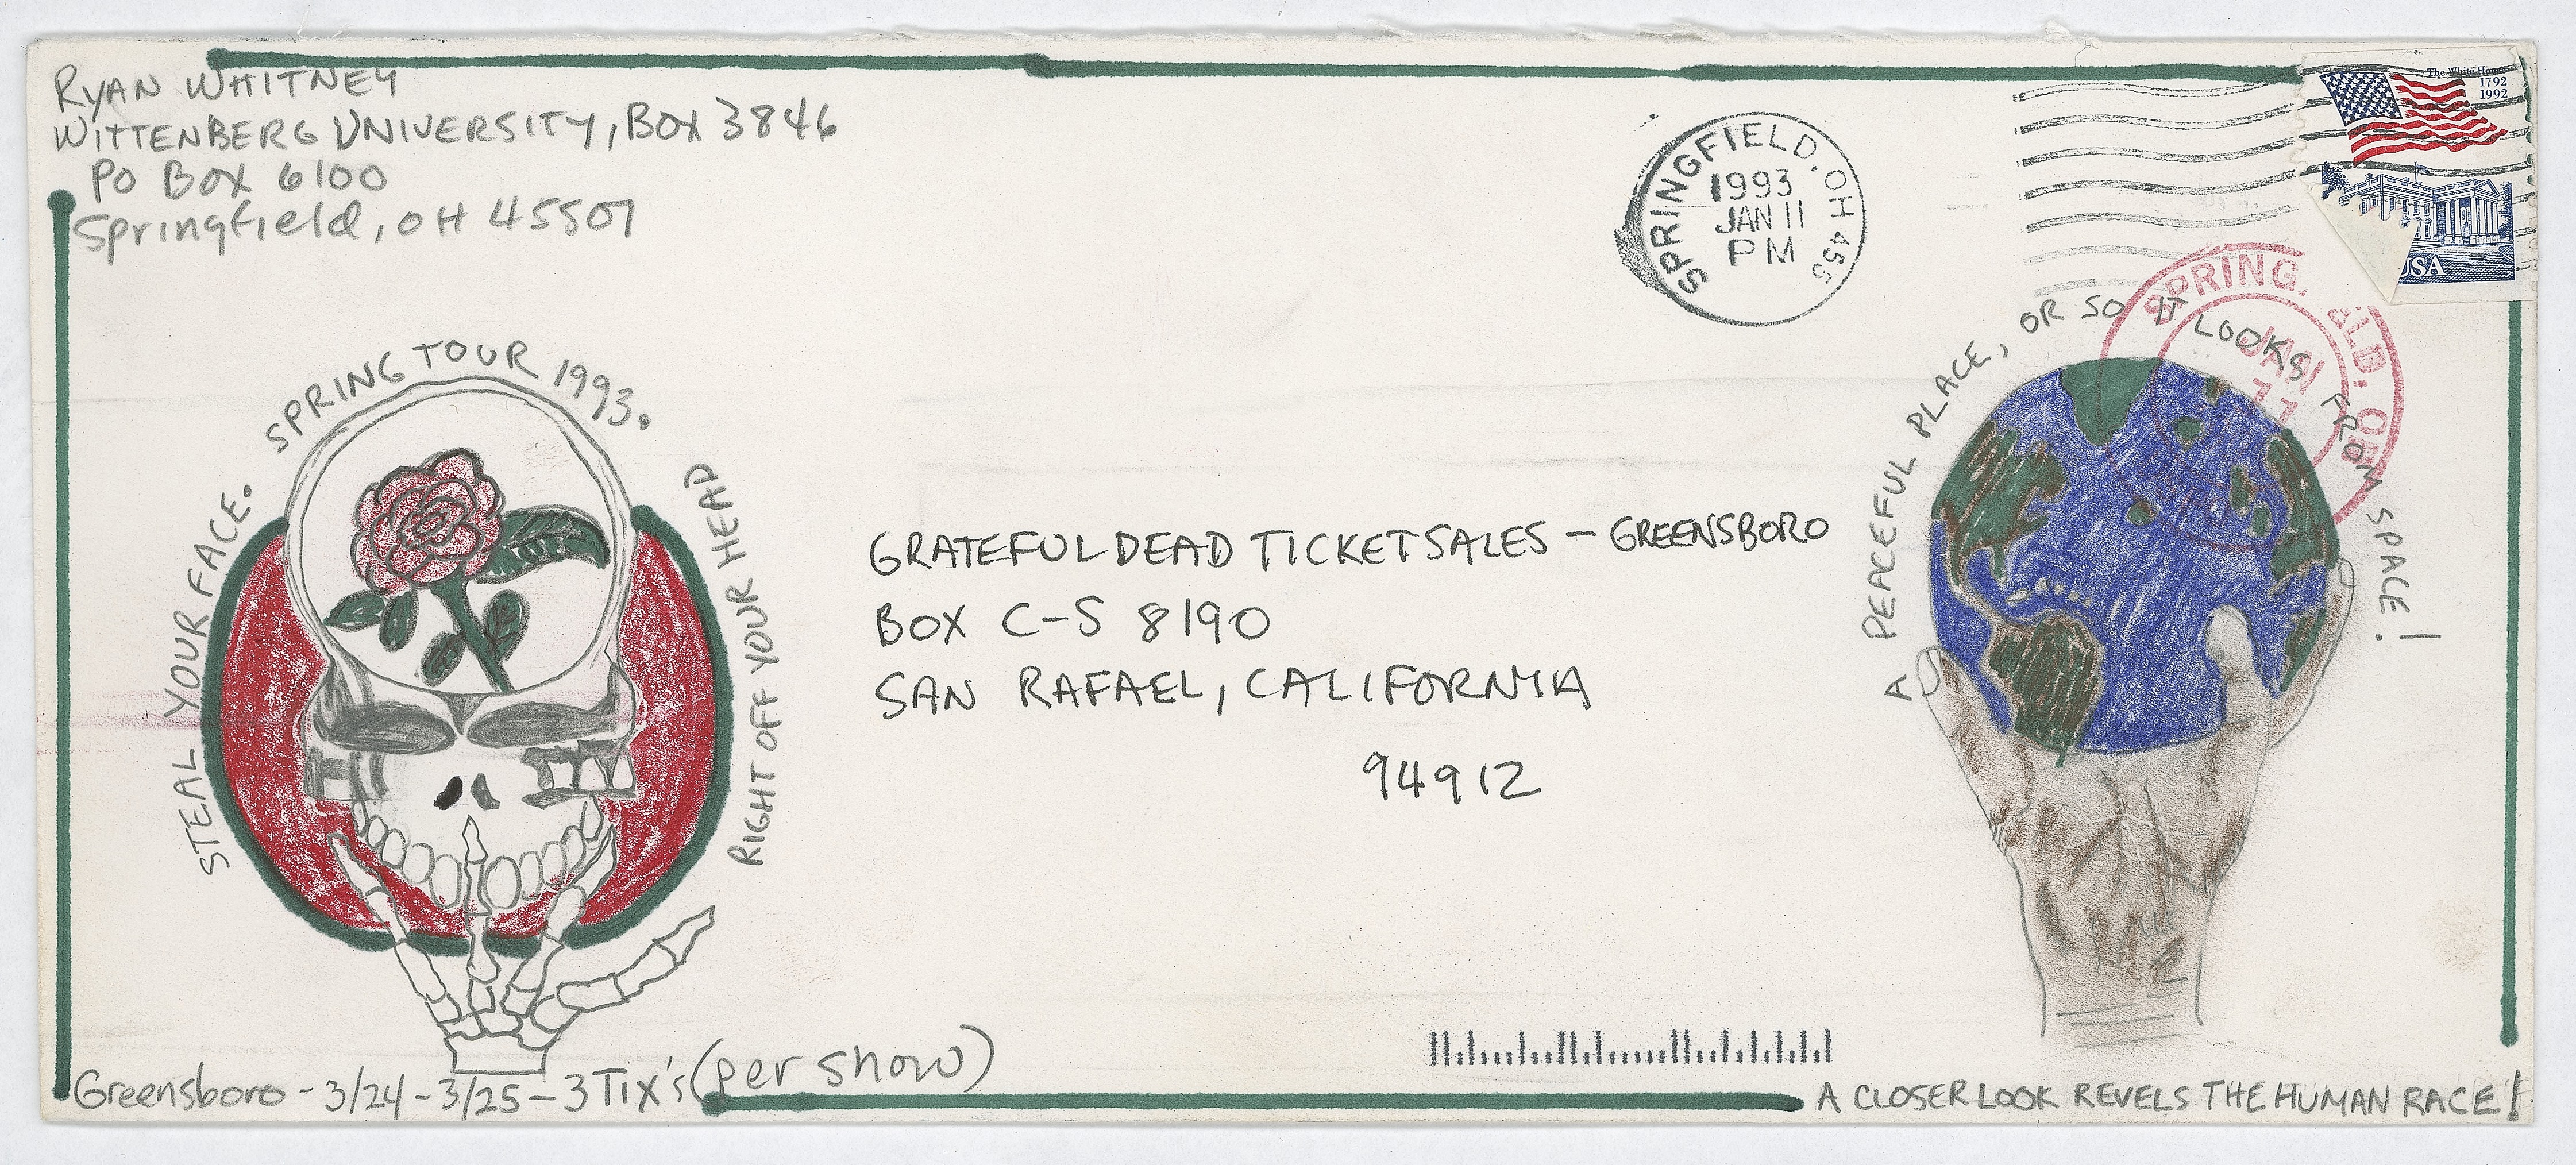 RYAN WHITNEY
WITTENBERG UNIVERSITY, BOX 3846
PO BOX 6100
Springfield, OH 45501
SPRINGFIELD, OH 455
1993
JAN 11
PM
The White House
1792
1992
USA
JAN
11
STEAL YOUR FACE. SPRING TOUR 1993.
RIGHT OFF YOUR HEAD
GRATEFUL DEAD TICKET SALES - GREENSBORO
BOX C-S 8190
SAN RAFAEL, CALIFORNIA
94912
A PEACEFUL PLACE, OR SO IT LOOKS FROM SPACE!
Greensboro - 3/24 - 3/25 - 3 Tix's (per show)
A CLOSER LOOK REVELS THE HUMAN RACE!